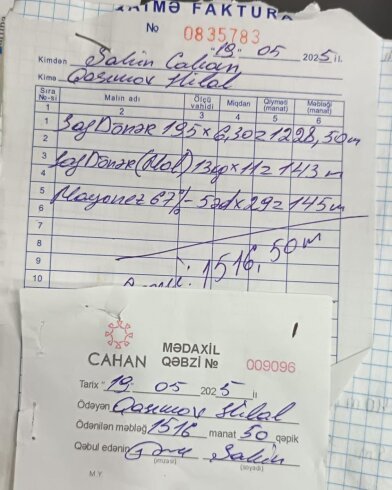 QAİMƏ FAKTURA
No 0835783
"19" 05 2025 il.
Kimdən Şahin Cahan
Kimə Qasımov Hilal
Sıra №-si Malın adı Ölçü vahidi Miqdarı Qiyməti (manat) Məbləği (manat)
1 2 3 4 5 6
1 Sag Dönər 195 x 6,30 = 1228,50 m
2
3 Sag Dönər (Mal) 13 kg x 11 = 143 m
4
5 Mayonez 67% - 5əd x 29 = 145 m
6
7
8 1516,50 m
9
10
CAHAN
MƏDAXİL
QƏBZİ № 009096
Tarix "19" 05 2025 il
Ödəyən Qasımov Hilal
Ödənilən məbləğ 1516 manat 50 qəpik
Qəbul edənin Şahin
(imzası) (soyadı)
M.Y.